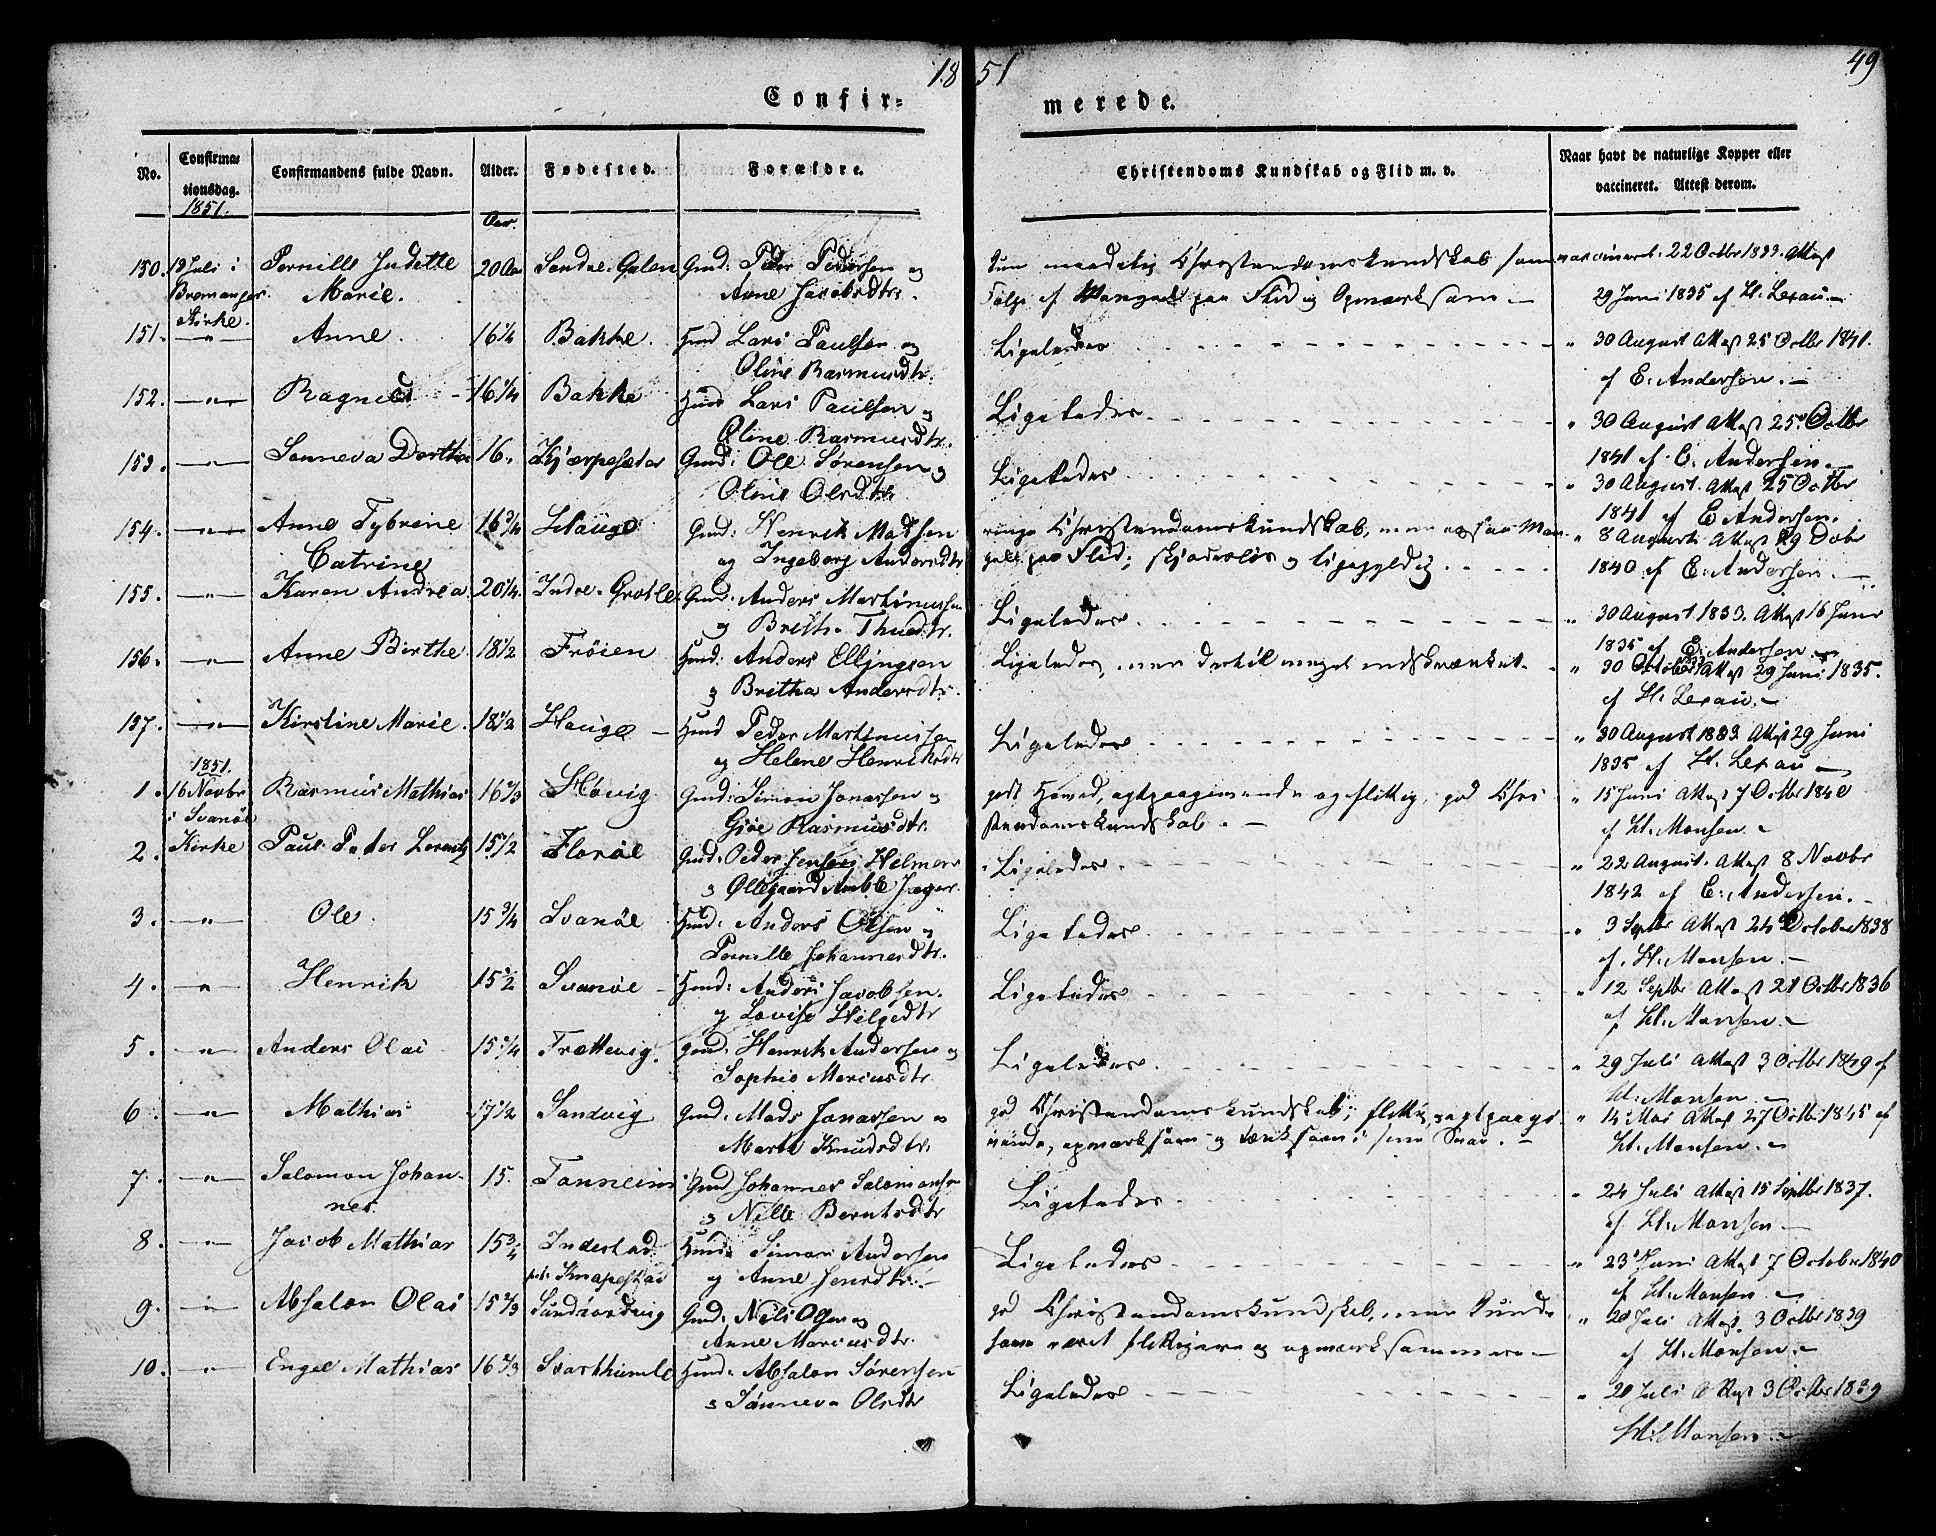 1851
49
Confirmerede.
No.
Confirmationsdag.
1851.
Confirmandens fulde Navn.
Alder.
Aar.
Fødested.
Forældre.
Christendoms Kundskab og Flid m. v.
Naar havt de naturlige Kopper eller
vaccineret. Attest derom.
150. 13 Juli i Pernille Judette 20 Aar Søndre-Galen Gmd: Peder Pedersen og
Bremanger Marie. Anne Jacobsdtr.
Kirke.
Kun maadelig Christendomskundskab som vaccineret. 22 Octbr 1833. Attest
Følge af Mangel paa Flid og Opmærksom — 29 Juni 1835 af H. Lexau —
151. —"— Anne. 16 1/4 Bakke. Huusd Lars Paulsen og
Oline Rasmusdtr.
Ligeledes " 30 August Attest 25 Octbr 1841.
af E. Andersen. —
152. —"— 16 1/4 Bakke Lars Paulsen og
Oline Rasmusdtr.
Ligeledes " 30 August Attest 25 Octbr
1841 af E. Andersen. —
153. —"— Sønneva Dorthea 16. Kjærpesæter Gmd: Ole Sørensen og
Oline Olsdtr
Ligeledes " 30 August. Attest 25 Octbr
1841 af E. Andersen.
154. —"— Anne Sybrine 16 3/4 Hauge Gmd: Henrik Madsen
Catrine og Ingeborg Andersdtr
ringe Christendomskundskab, men ogsaa Man
gel paa Flid; skjødesløs og ligegyldig
" 8 August Attest 29 Octbr
1840 af E. Andersen —
155. —"— Karen Andrea 20 1/4. Indre-Grotle Gmd: Anders Martinussen
og
Ligeledes " 30 August 1833. Attest 16 Juni
1835 af E. Andersen —
156. —"— Anne Birthe 18 1/2 Frøien Huusd: Anders Ellingsen
og Britha Andersdtr.
Ligeledes, men dertil meget indskrænket. " 30 October 1833 Attest 29 Juni 1835.
af H. Lexau. —
157. —"— Kirstine Marie. 18 1/2 Hauge — Huusd Peder Martinussen
og Helene Henriksdtr
Ligeledes " 30 August 1833 Attest 29 Juni
1835 af H. Lexau —
1851.
1. 16 Novbr Rasmus Mathias 16 2/3 Høvig Gmd: Simon Jonassen og
i Svanøe Gjøe Rasmusdtr.
godt Hoved, agtpaagivende og flittig, god Chri
stendomskundskab. —
" 15 Juni Attest 7 Octbr 1840
af H. Monsen. —
2. Kirke Paul Peder Lorentz 15 1/2 Florøe Gmd: Peder Jensen Helmers
og Ollegaard Amble Jæger.
Ligeledes. " 22 August. Attest 8 Novbr
1842 af E. Andersen. —
3. —"— Ole. 15 3/4 Svanøe Huusd: Anders Olsen og
Pernille Johannesdtr.
Ligeledes " 3 Septbr Attest 24 October 1838
af. H. Monsen. —
4. —"— Henrik 15 1/2 Svanøe Huusd: Anders Jacobsen.
og Lovise Helgedtr
Ligeledes " 12 Septbr Attest 21 Octbr 1836
af H. Monsen. —
5. —"— Anders Olai 15 1/4 Trættevig. Gmd: Henrik Andersen og
Sophie Mariusdtr.
Ligeledes. " 29 Juli Attest 3 Octbr 1849 af
H. Monsen. —
6. —"— Mathias 17 1/2 Sandvig Gmd: Mads Jonassen og
Marte Knudsdtr.
god Christendomskundskab; flittig, agtpaagi
vende, opmærksom og tænksom i sine Svar. —
" 14 Mai Attest 27 Octbr 1845 af
H. Monsen. —
7. —"— Salomon Johan- 15. Tonneim Gmd Johannes Salomonsen
nes. og Nille Berntsdtr
Ligeledes " 24 Juli Attest 15 Septbr 1837.
af H. Monsen —
8. —"— Jacob Mathias 15 3/4 Indestad Huusd: Simon Andersen
pl: Knapestad og Anne Jensdtr. —
Ligeledes " 23 Juni Attest 7 October 1840
af H. Monsen. —
9. —"— Absalon Olai 15 2/3 Gmd: Nils Olsen og
Anne Mariusdtr.
god Christendomskundskab, men kunde
have været flittigere og opmærksommere —
" 20 Juli Attest. 3 Octbr 1839
af H. Monsen. —
10. —"— Engel Mathias 16 2/3 Svarthumle Huusd: Absalon Sørensen
og Sønneva Olsdtr
Ligeledes " 20 Juli Attest 3 Octbr 1839
H. Monsen —